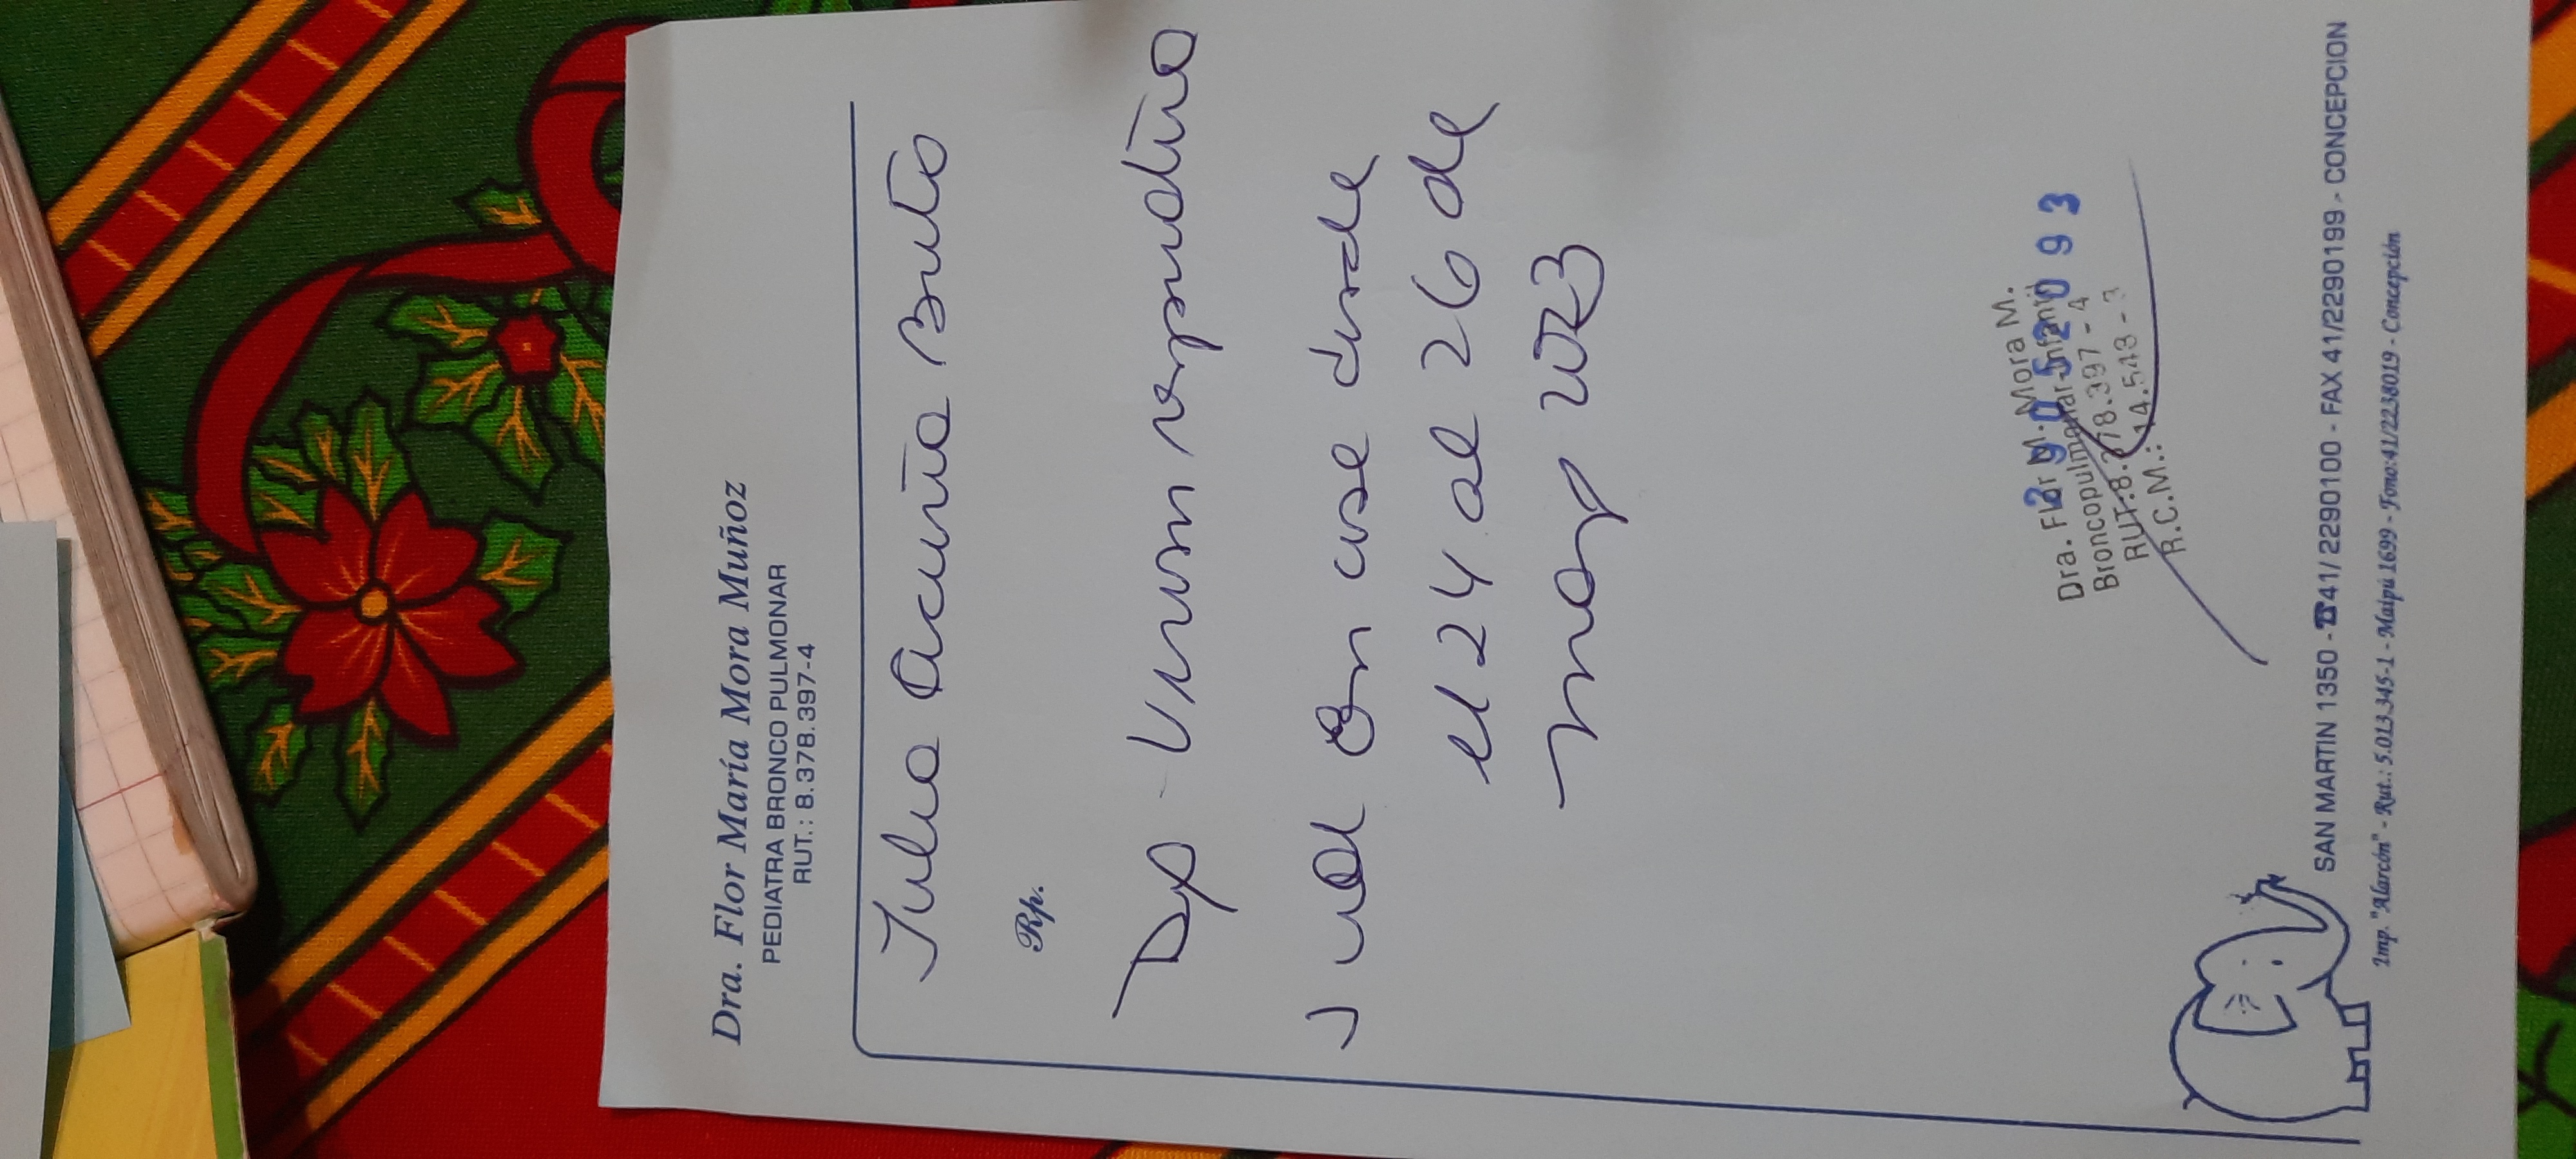 Dra. Flor María Mora Muñoz
PEDIATRA BRONCO PULMONAR
RUT.: 8.378.397-4
Acuña
Rp.
Dp
en casa desde
el 24 al 26 de
mayo 2023
Dra. Flor M. Mora M.
Broncopulmonar Infantil
RUT: 8.378.397 - 4
R.C.M.: 14.548 - 3
2 9 0 5 2 0 9 3
SAN MARTIN 1350 - ☎41/ 2290100 - FAX 41/2290199 - CONCEPCION
Imp. "Alarcón" - Rut.: 5.013.345-1 - Maipú 1699 - Fono:41/2238019 - Concepción